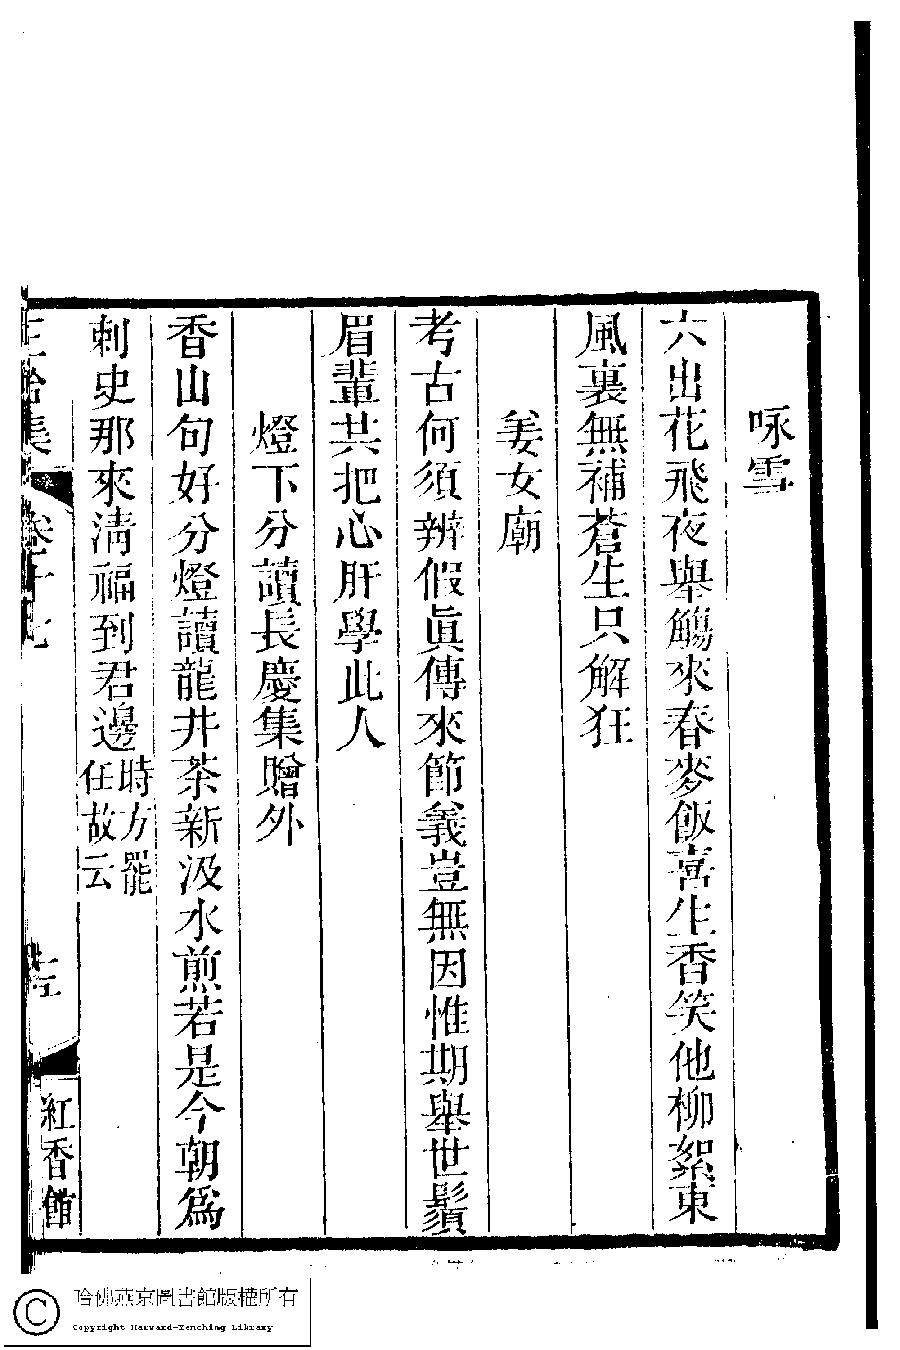 咏雪
六出花飛夜舉觴來春麥飯喜生香笑他柳絮東
風裏無補蒼生只解狂
姜女廟
考古何須辨假眞傳來節義豈無因惟期舉世鬚
眉輩共把心肝學此人
燈下分讀長慶集贈外
香山句好分燈讀龍井茶新汲水煎若是今朝爲
刺史那來淸福到君邊時方罷
任故云
集
卷十七
紅香館
哈佛燕京圖書館版權所有
Copyright Harvard-Yenching Library